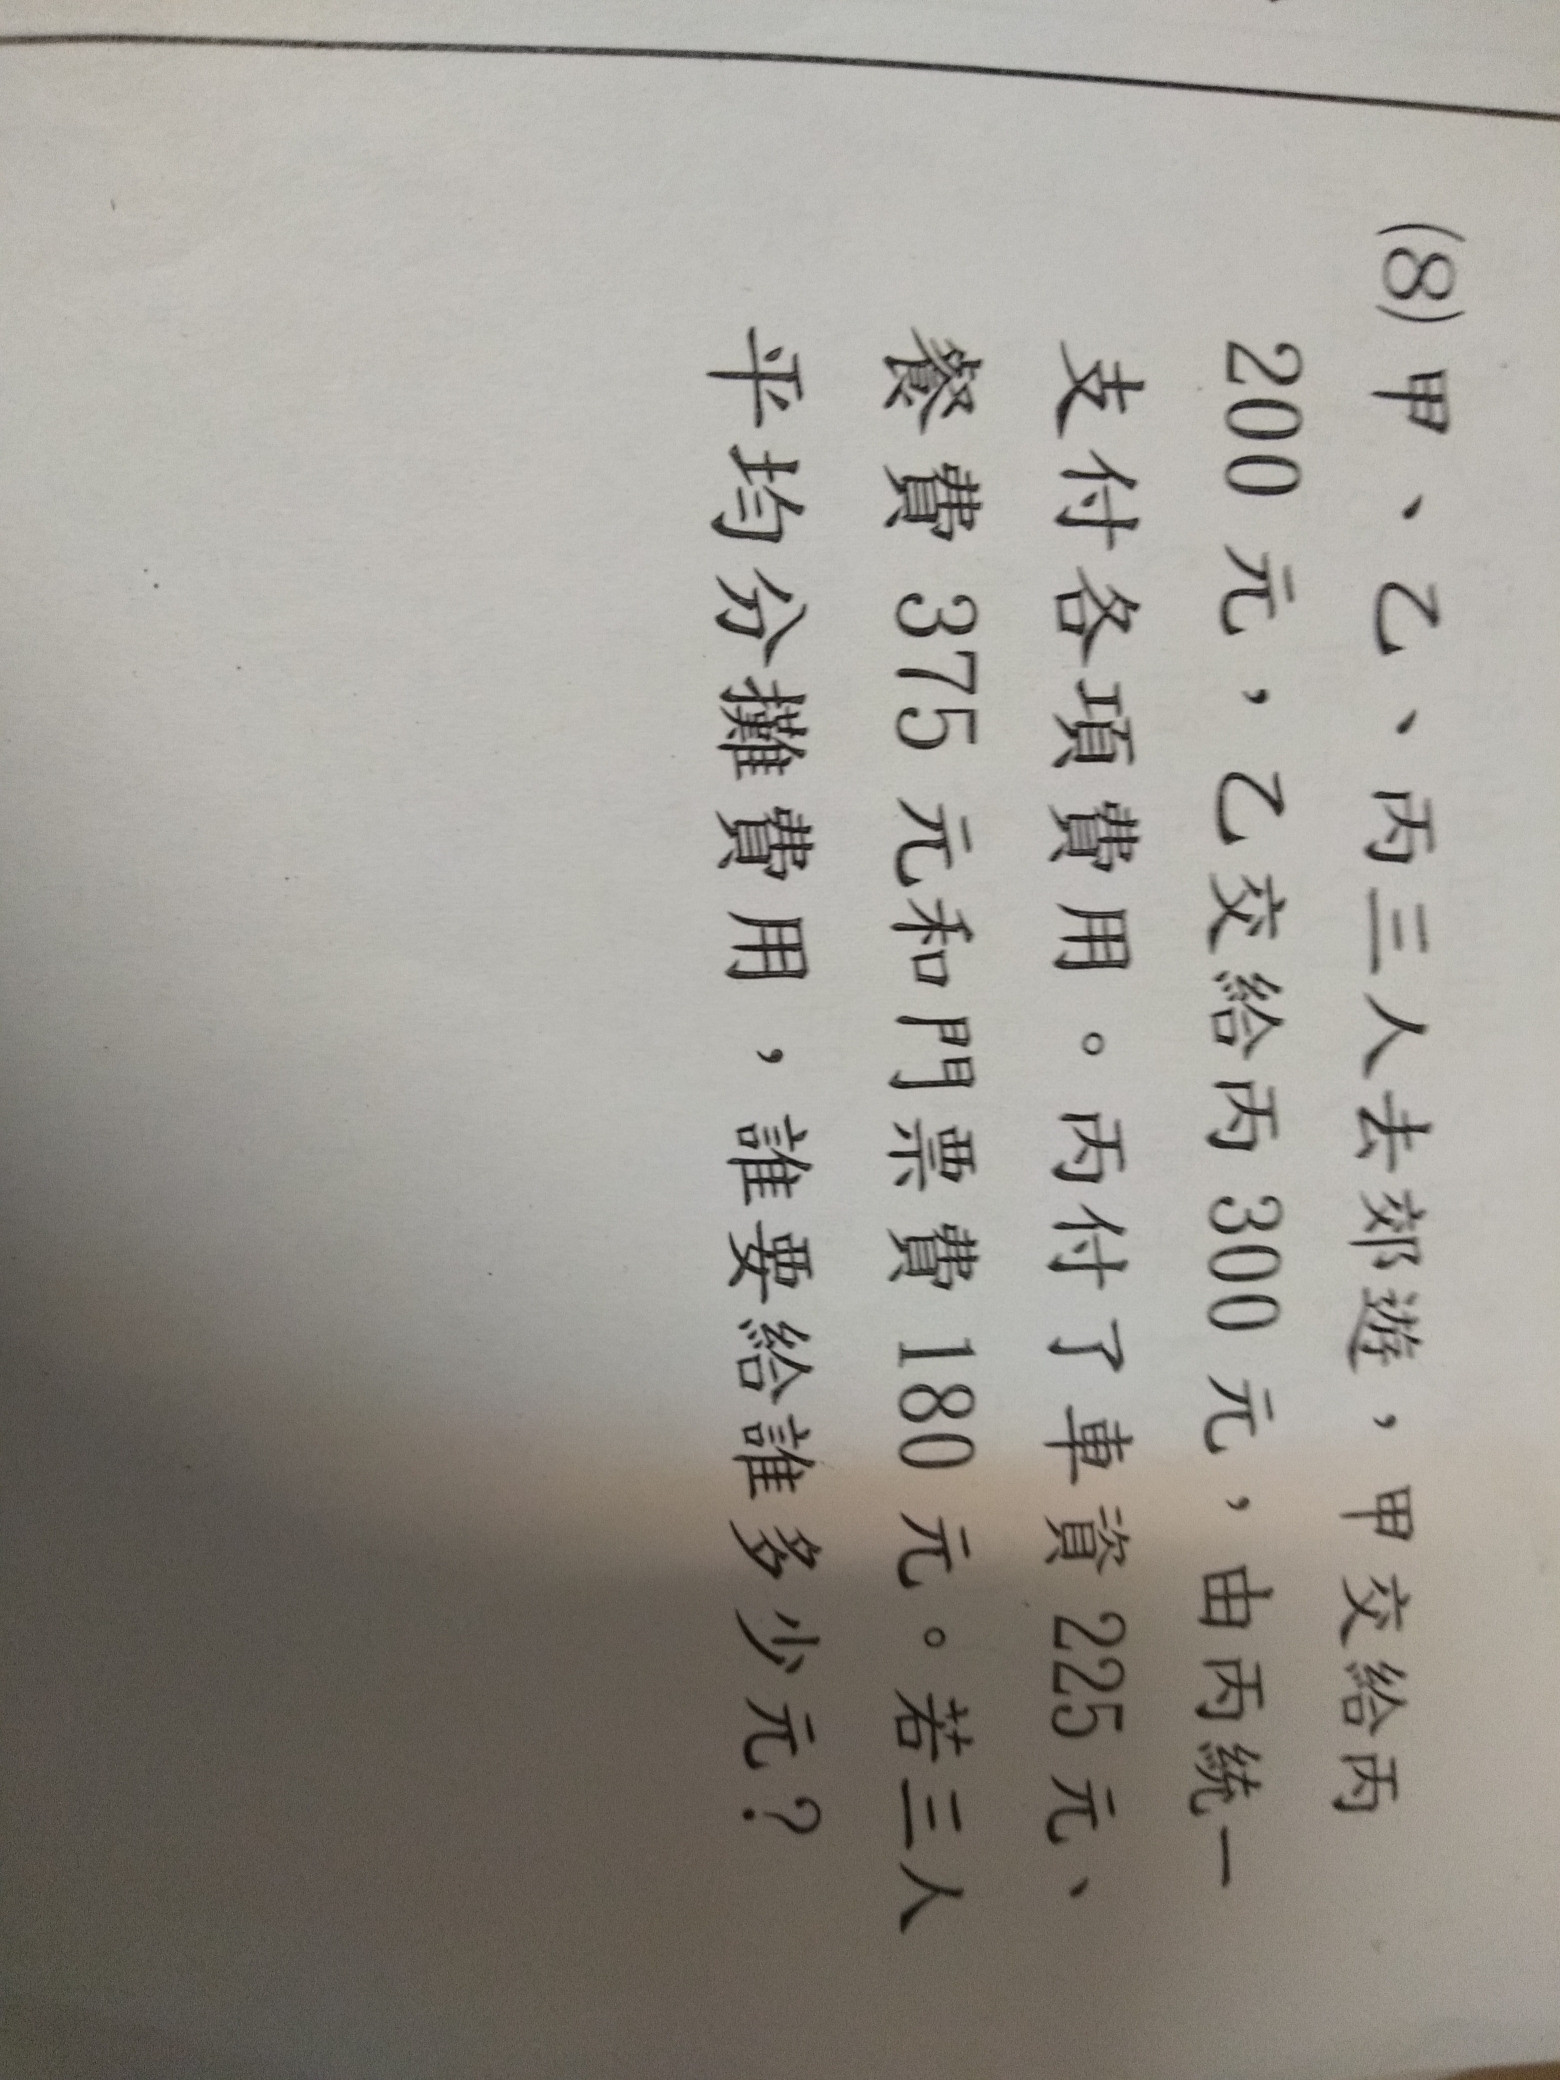 (8) 甲、乙、丙三人去郊遊，甲交給丙
200 元，乙交給丙 300 元，由丙統一
支付各項費用。丙付了車資 225 元、
餐費 375 元和門票費 180 元。若三人
平均分攤費用，誰要給誰多少元？